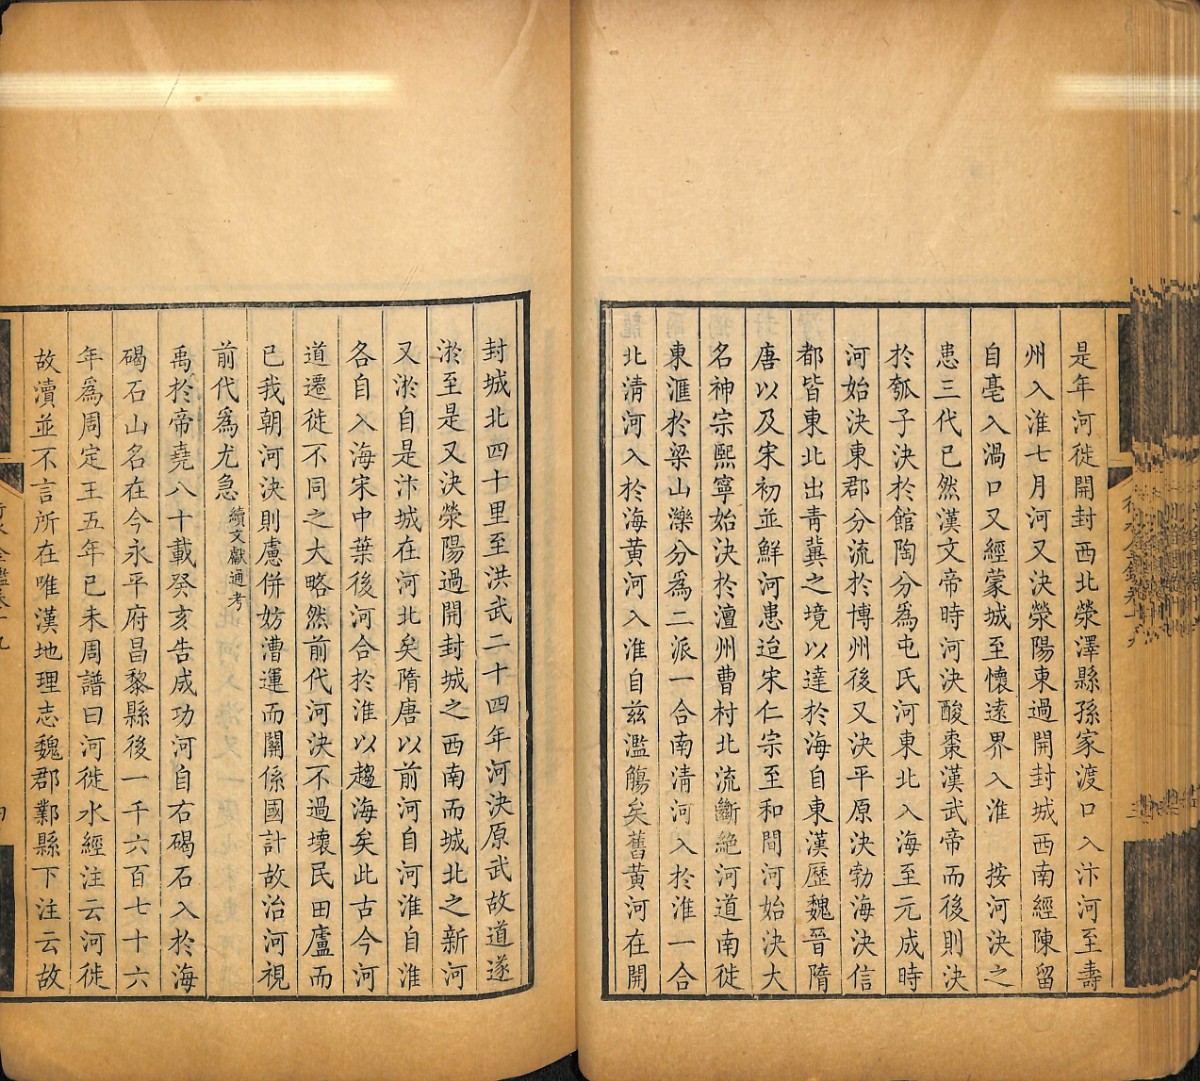 是年河徙開封西北滎澤縣孫家渡口入汴河至壽
州入淮七月河又決滎陽東過開封城西南經陳留
自亳入渦口又經蒙城至懷遠界入淮　按河決之
患三代已然漢文帝時河決酸棗漢武帝而後則決
於瓠子決於館陶分爲屯氏河東北入海至元成時
河始決東郡分流於博州後又決平原決勃海決信
都皆東北出青冀之境以達於海自東漢歷魏晉隋
唐以及宋初並鮮河患迨宋仁宗至和間河始決大
名神宗熙寧始決於澶州曹村北流斷絕河道南徙
東滙於梁山濼分爲二派一合南清河入於淮一合
北清河入於海黃河入淮自兹濫觴矣舊黃河在開
封城北四十里至洪武二十四年河決原武故道遂
淤至是又決滎陽過開封城之西南而城北之新河
又淤自是汴城在河北矣隋唐以前河自河淮自淮
各自入海宋中葉後河合於淮以趨海矣此古今河
道遷徙不同之大略然前代河決不過壞民田廬而
已我朝河決則慮併妨漕運而關係國計故治河視
前代爲尤急續文獻通考
禹於帝堯八十載癸亥告成功河自右碣石入於海
碣石山名在今永平府昌黎縣後一千六百七十六
年爲周定王五年己未周譜曰河徙水經注云河徙
故瀆並不言所在唯漢地理志魏郡鄴縣下注云故